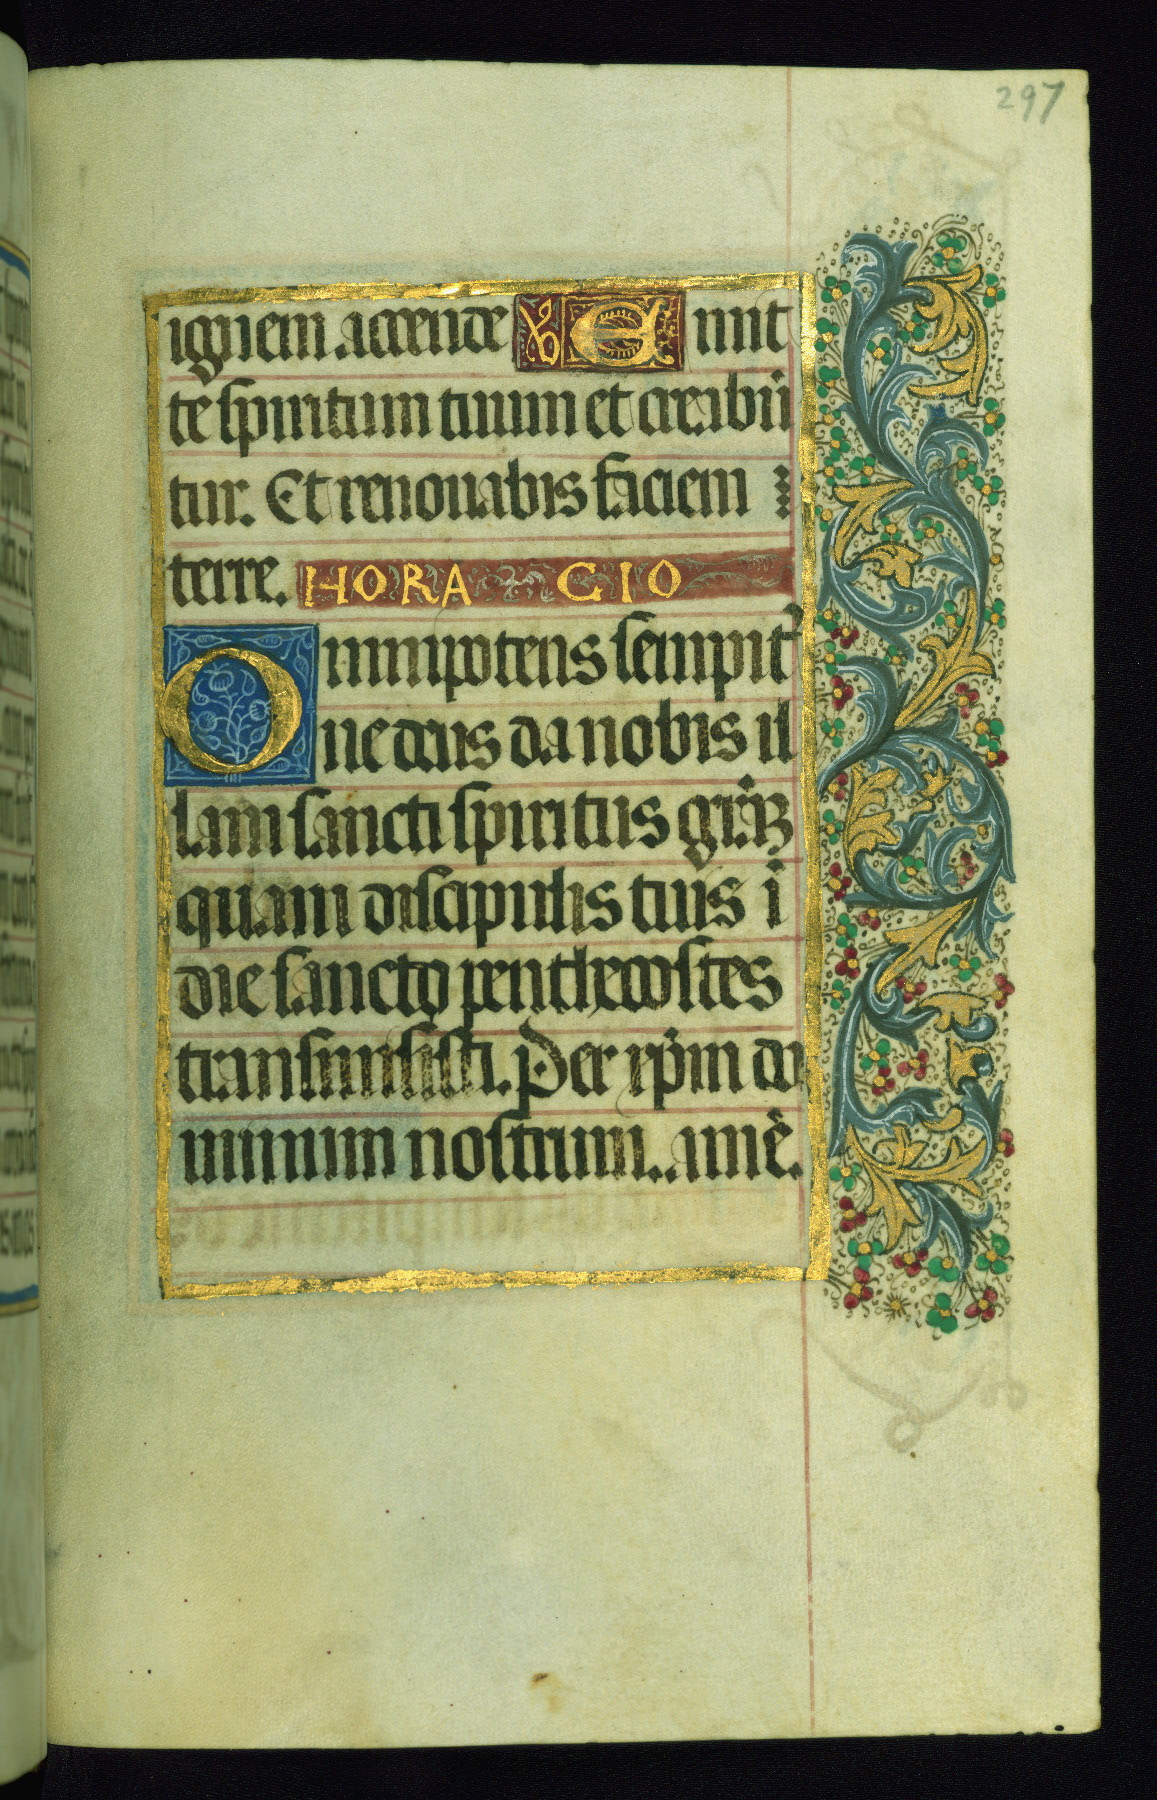 297
ignem accende V Emit
te spiritum tuum et creabū
tur. Et renouabis faciem
terre. HORA CIO
Omnipotens sempit
ne deus da nobis il
lam sancti spiritus grāz
quam discipulis tuis ī
die sancto penthecostes
transmisisti. Per xp̄m do
minum nostrum. amē.